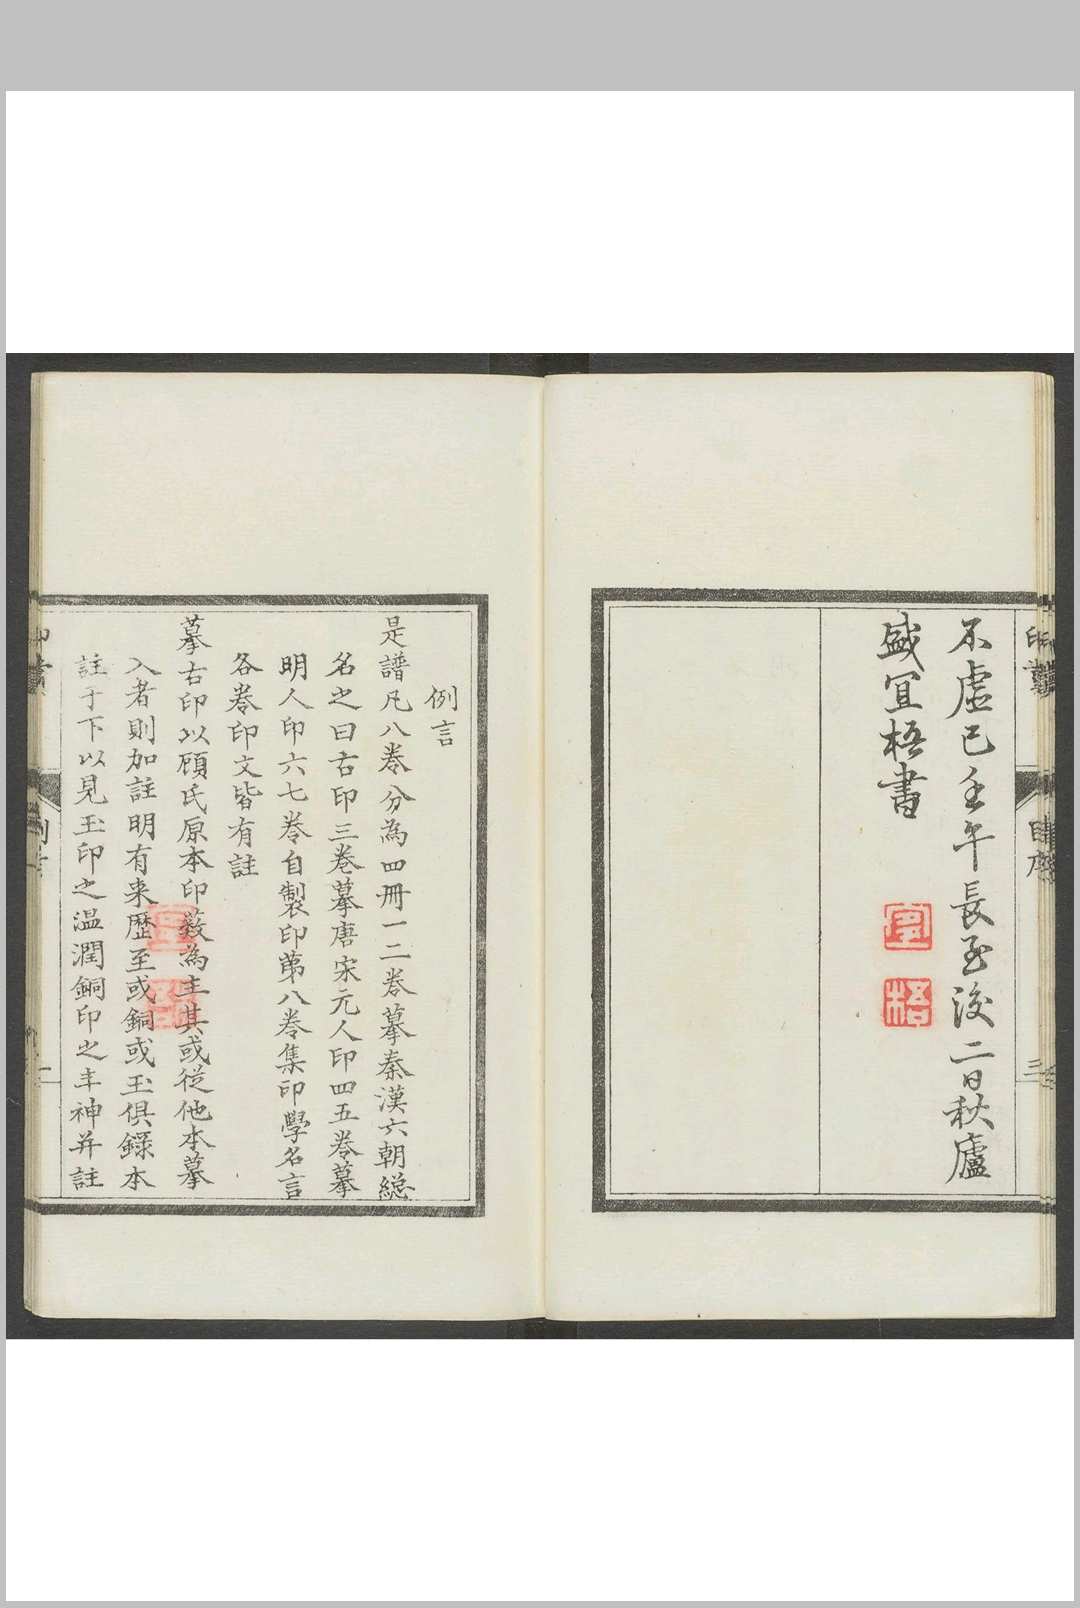 不虛已壬午長至後二日秋廬
盛宜梧書
宜
梧
三
例言
是譜凡八卷分為四冊一二卷摹秦漢六朝總
名之曰古印三卷摹唐宋元人印四五卷摹
明人印六七卷自製印第八卷集印學名言
各卷印文皆有註
摹古印以顧氏原本印藪為主其或從他本摹
入者則加註明有来歷至或銅或玉俱錄本
註于下以見玉印之温潤銅印之丰神并註